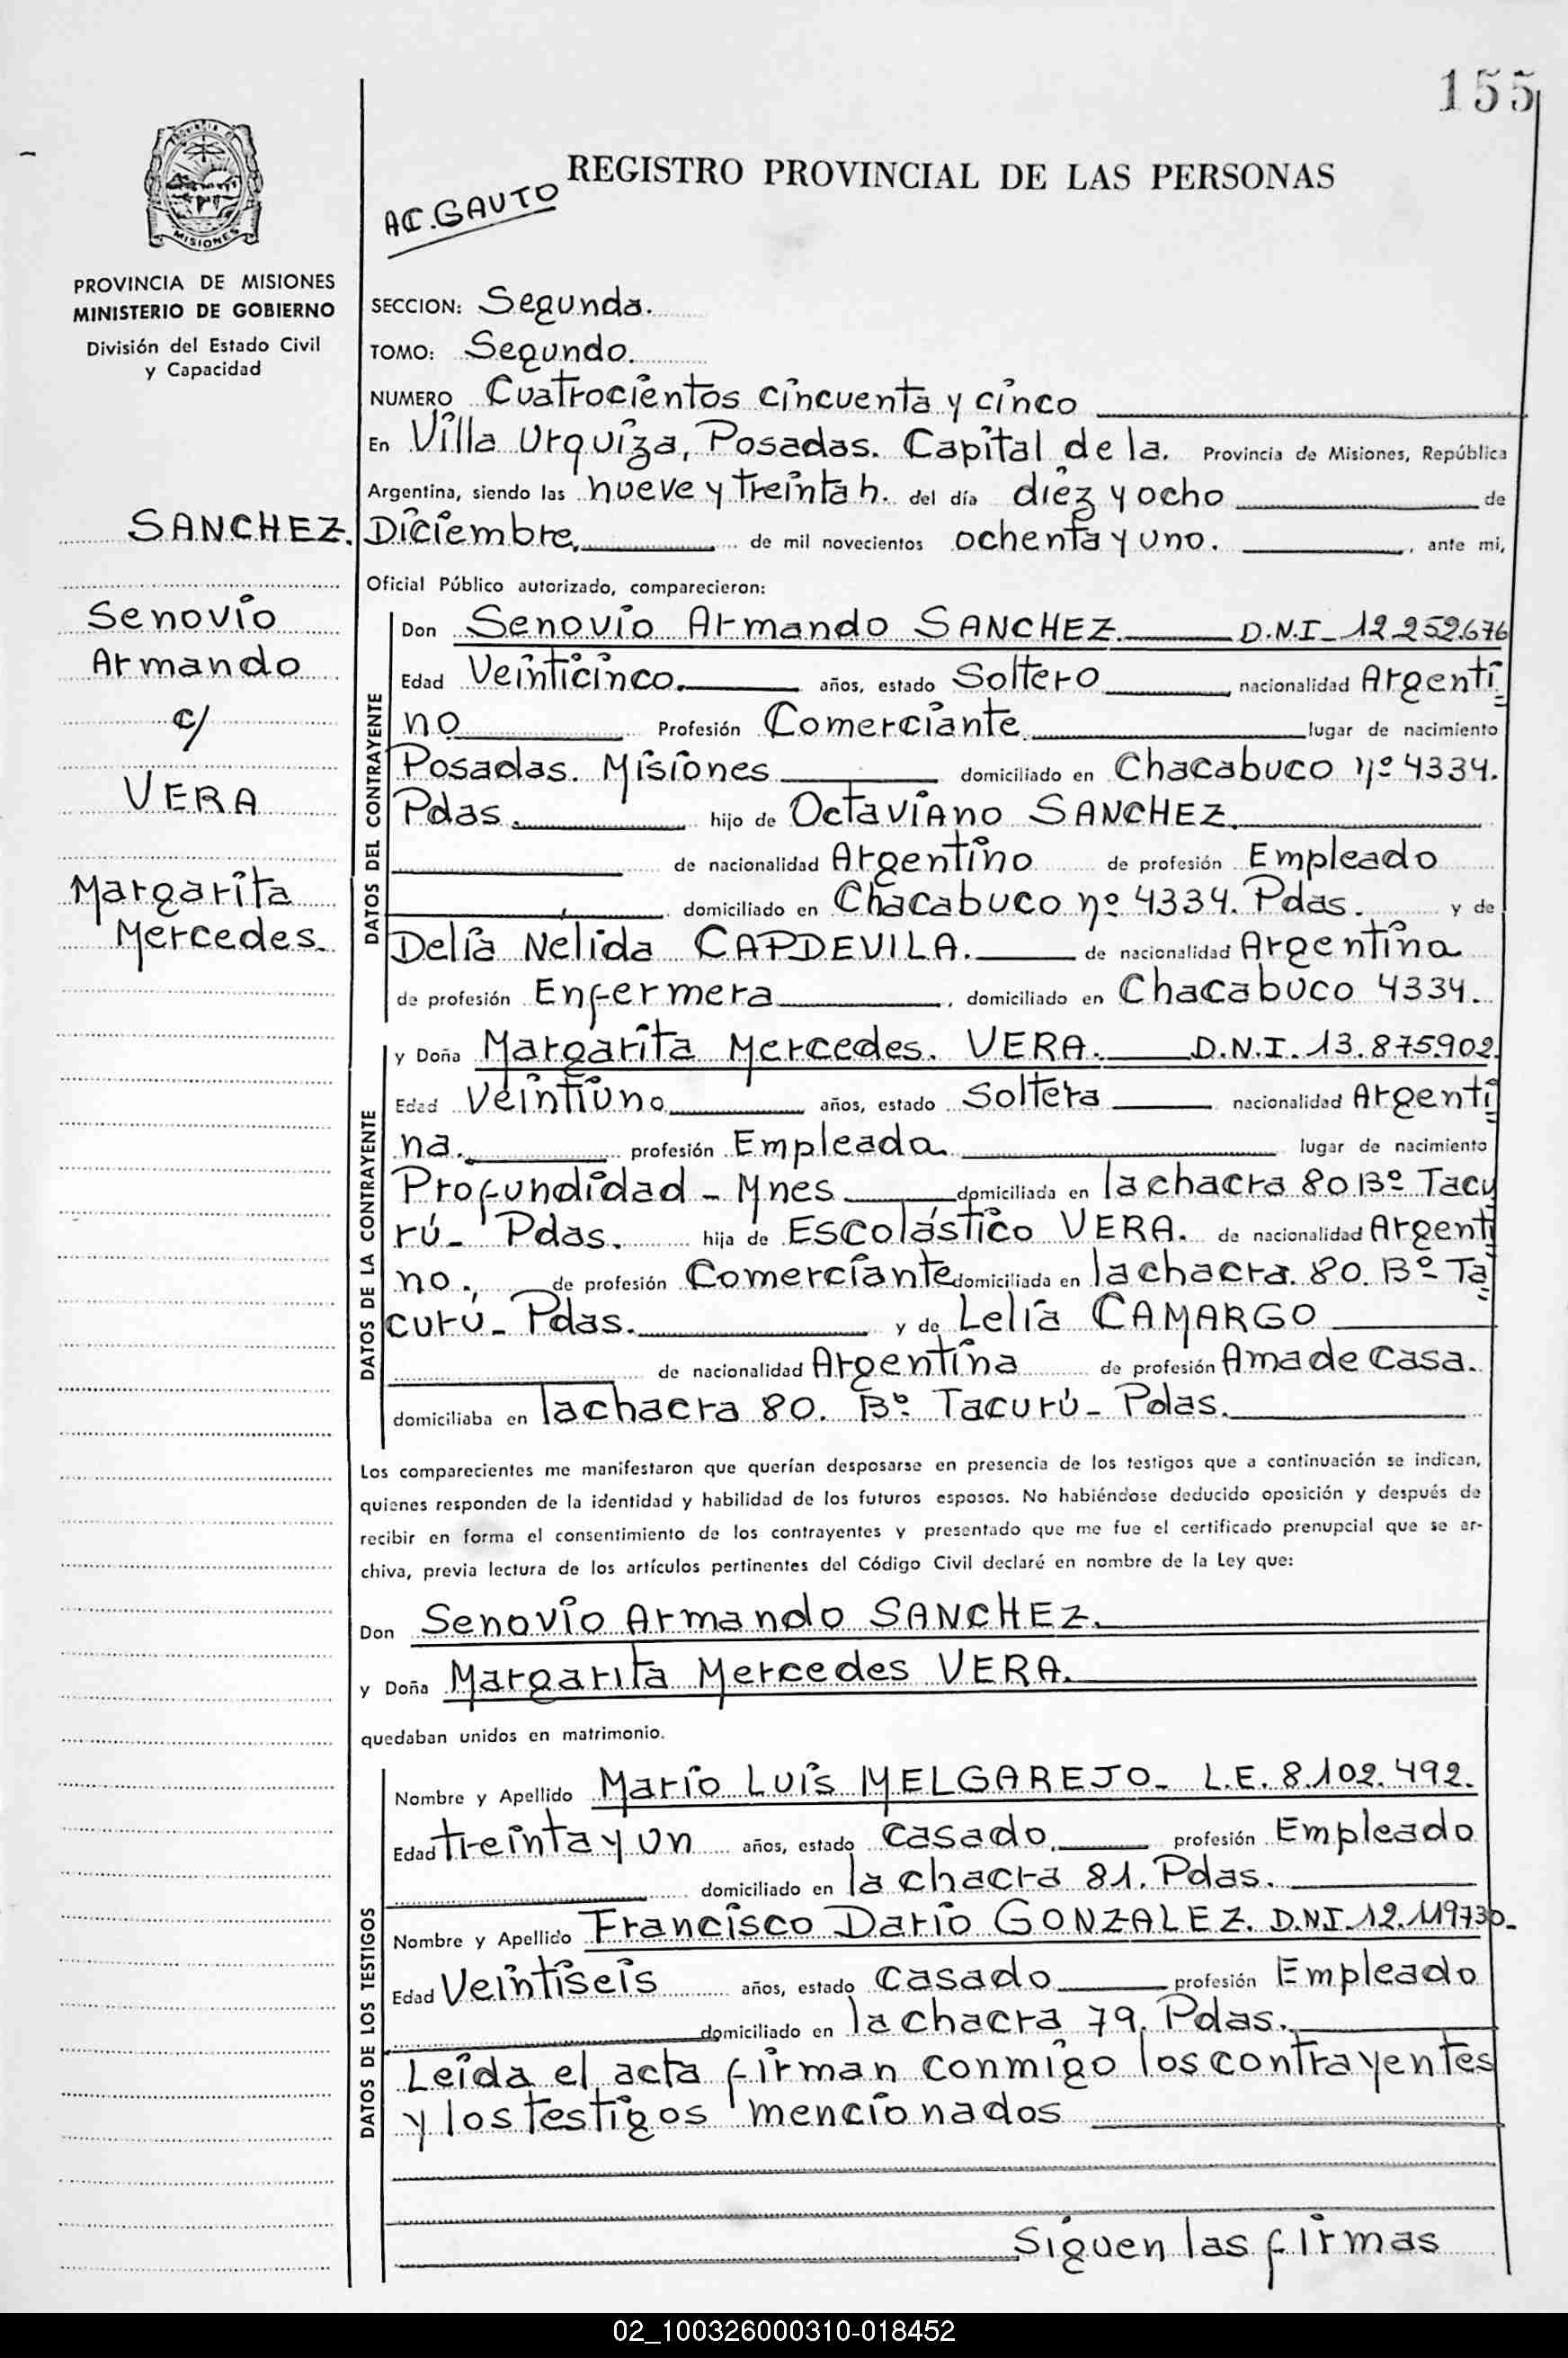 155
REGISTRO PROVINCIAL DE LAS PERSONAS
AC. GAUTO
MISIONES
PROVINCIA DE MISIONES
MINISTERIO DE GOBIERNO
División del Estado Civil
y Capacidad
SANCHEZ.
Senovio
Armando
c/
VERA
Margarita
Mercedes.
SECCION: Segunda.
TOMO: Segundo.
NUMERO Cuatrocientos cincuenta y cinco
En Villa Urquiza, Posadas. Capital de la. Provincia de Misiones, República
Argentina, siendo las nueve y treinta h. del día diez y ocho de
Diciembre, de mil novecientos ochenta y uno. , ante mi,
Oficial Público autorizado, comparecieron:
DATOS DEL CONTRAYENTE
Don Senovio Armando SANCHEZ. D.N.I_ 12.252.676
Edad Veinticinco. años, estado Soltero nacionalidad Argenti
no Profesión Comerciante lugar de nacimiento
Posadas. Misiones domiciliado en Chacabuco nº 4334.
Pdas. hijo de Octaviano SANCHEZ.
de nacionalidad Argentino de profesión Empleado
domiciliado en Chacabuco nº 4334. Pdas. y de
Delia Nelida CAPDEVILA. de nacionalidad Argentina
de profesión Enfermera , domiciliado en Chacabuco 4334.
DATOS DE LA CONTRAYENTE
y Doña Margarita Mercedes. VERA. D.N.I. 13.875.902.
Edad Veintiuno años, estado Soltera nacionalidad Argenti
na. profesión Empleada lugar de nacimiento
Profundidad - Mnes domiciliada en la chacra 80 Bº Tacu
rú- Pdas. hija de Escolástico VERA. de nacionalidad Argenti
no. , de profesión Comerciante domiciliada en la chacra. 80. Bº Ta
curú- Pdas. y de Lelia CAMARGO
de nacionalidad Argentina de profesión Ama de Casa.
domiciliaba en la chacra 80. Bº Tacurú- Pdas.
Los comparecientes me manifestaron que querían desposarse en presencia de los testigos que a continuación se indican,
quienes responden de la identidad y habilidad de los futuros esposos. No habiéndose deducido oposición y después de
recibir en forma el consentimiento de los contrayentes y presentado que me fue el certificado prenupcial que se ar-
chiva, previa lectura de los artículos pertinentes del Código Civil declaré en nombre de la Ley que:
Don Senovio Armando SANCHEZ.
y Doña Margarita Mercedes VERA.
quedaban unidos en matrimonio.
DATOS DE LOS TESTIGOS
Nombre y Apellido Mario Luis MELGAREJO- L.E. 8.102.492.
Edad treinta y un años, estado casado profesión Empleado
domiciliado en la chacra 81. Pdas.
Nombre y Apellido Francisco Dario GONZALEZ. D.N.I. 12.119730-
Edad Veintiseis años, estado casado profesión Empleado
domiciliado en la chacra 79. Pdas.
Leída el acta firman conmigo los contrayentes
y los testigos mencionados
Siguen las firmas
02_100326000310-018452